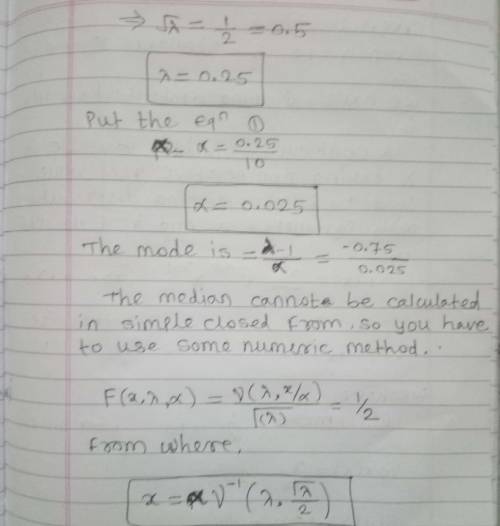 ⇒ √λ = 1/2 = 0.5
λ = 0.25
Put the eqn ①
α = 0.25/10
α = 0.025
The mode is = λ-1/α = -0.75/0.025
The median cannot be calculated
in simple closed from, so you have
to use some numeric method.
F(x,λ,α) = γ(λ, x/α)/Γ(λ) = 1/2
from where,
x = α γ⁻¹(λ, Γλ/2)